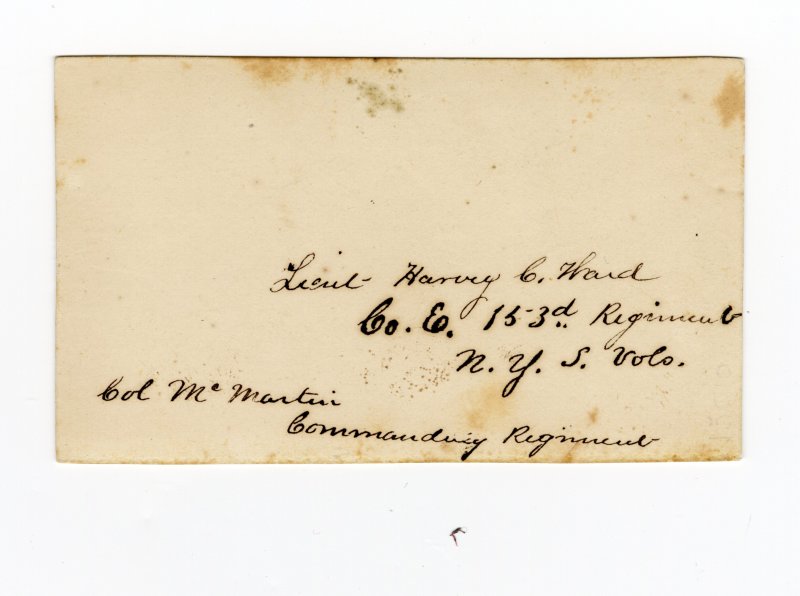 Lieut Harvey C. Ward
Co. E. 153d Regiment
N. Y. S. Vols.
Col Mc Martin
Commanding Regiment